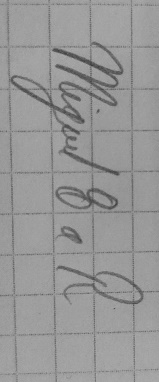 Miguel 8 a R